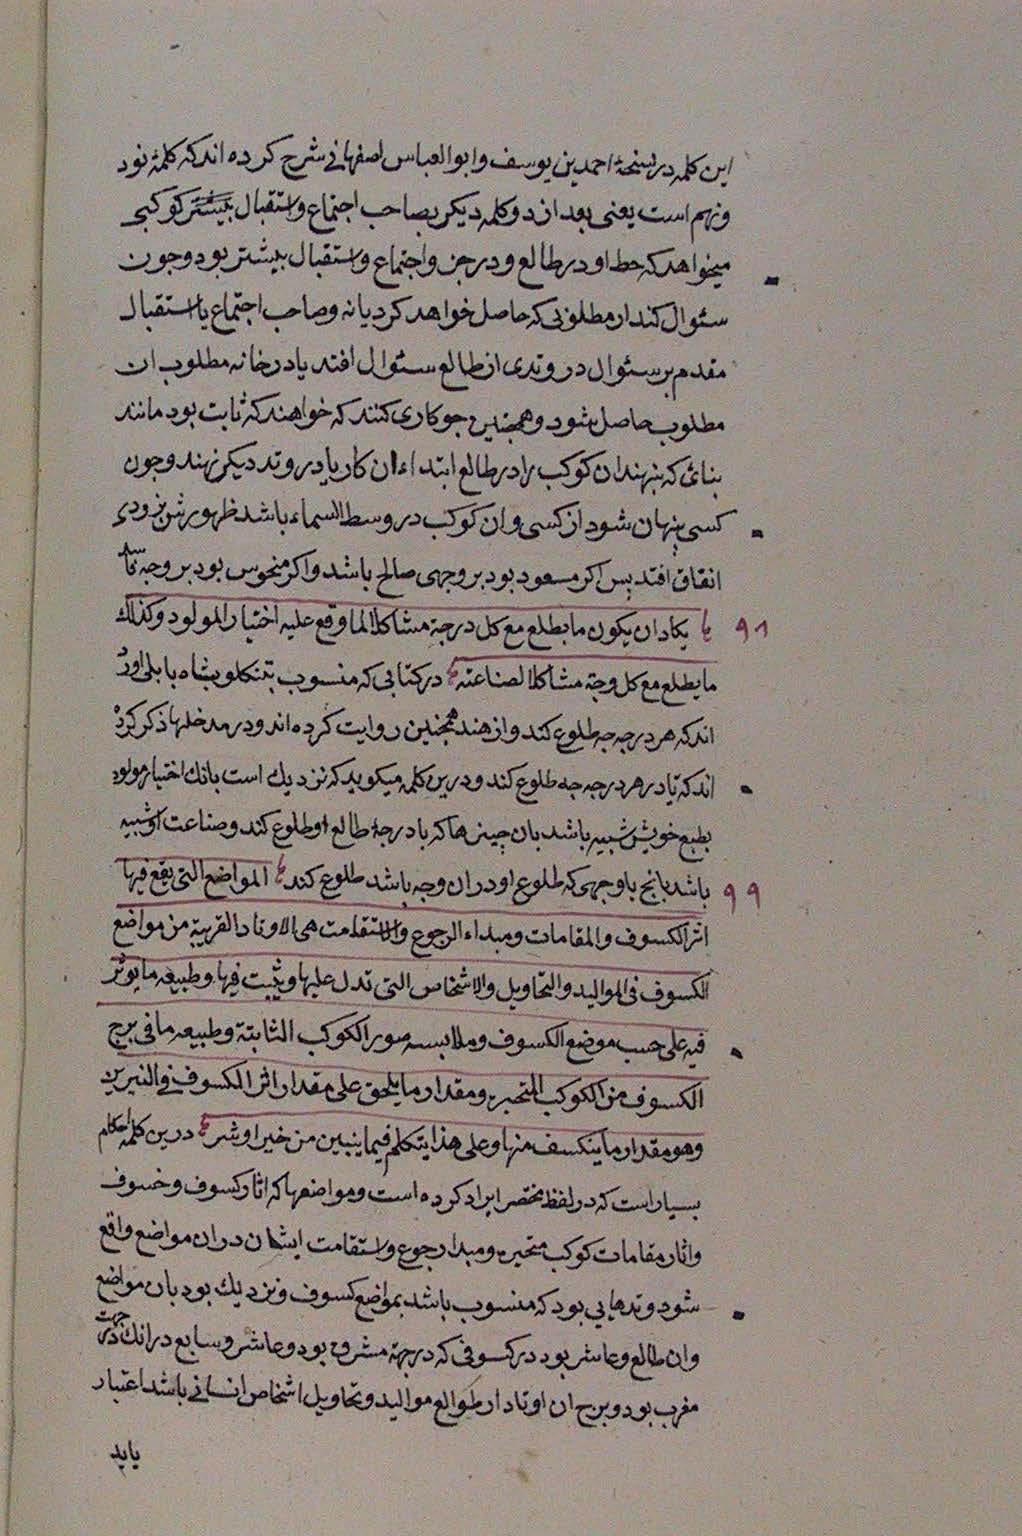 این کلمه در نسخهٔ احمد بن یوسف و ابو العباس اصفهانی شرح کرده اند که کلمهٔ نود
و نهم است یعنی بعد از دو کلمه دیکر بصاحب اجتماع و استقبال بیشتر کوکبی
میخواهد که حظ او در طالع و در جزو اجتماع و استقبال بیشتر بود و چون
سئوال کند از مطلوبی که حاصل خواهد کرد یا نه و صاحب اجتماع یا استقبال
مقدم بر سئوال در وتدی از طالع سئوال افتد یا در خانه مطلوب ان
مطلوب حاصل شود و همچنین جو کاری کنند که خواهند که ثابت بود مانند
بنائی که بنهند ان کوکب را در طالع ابتداء ان کار یا در وتد دیکر نهند و چون
کسی پنهان شود از کسی و ان کوکب در وسط السماء باشد ظهورش بزودی
اتفاق افتد پس اکر مسعود بود بر وجهی صالح باشد و اکر منحوس بود بر وجه فاسد
۹۸ یکاد ان یکون ما یطلع مع کل درجة مشاکلا لما وقع علیه اختیار المولود و کذلک
ما یطلع مع کل وجه مشاکلا لصناعته در کتابی که منسوب بتنکلوشاه بابلی اورد
اند که هر درجه چه طلوع کند و از هند همچنین روایت کرده اند و در مدخلها ذکر کرد
اند که تا در هر درجه چه طلوع کند و درین کلمه میکوید که نزدیک است بانک اختیار مولود
بطبع خویش شبیه باشد بان چیزها که با درجهٔ طالع او طلوع کند و صناعت او شبیه
باشد بانچ با وجهی که طلوع او در ان وجه باشد طلوع کند ۹۹ المواضع التی یقع فیها
اثر الکسوف والمقامات و مبداء الرجوع والاستقامت هی الاوتاد القریبة من مواضع
الکسوف فی الموالید والتحاویل والاشخاص التی تدل علیها و یثبت فیها و طبیعه ما یوثر
فیه علی حسب موضع الکسوف و ملابسه صور الکوکب الثابتة و طبیعه ما فی برج
الکسوف من الکوکب المتحیره و مقدار ما یلحق علی مقدار اثر الکسوف فی النیرین
و هو مقدار ما ینکسف منها و علی هذا یتکلم فیما ینبین من خیر او شر درین کلمه احکام
بسیار است که در لفظ مختصر ایراد کرده است و مواضعها که اثار کسوف و خسوف
و اثار مقامات کوکب متحیره و مبدا رجوع و استقامت ایشان در ان مواضع واقع
شود وتدهایی بود که منسوب باشد بمواضع کسوف و نزدیک بود بان مواضع
و ان طالع و عاشر بود در کسوفی که در جهة مشرق بود و عاشر و سابع در انک در جهت
مغرب بود و برج ان اوتاد از طوالع موالید و تحاویل اشخاص انسانی باشد اعتبار
باید